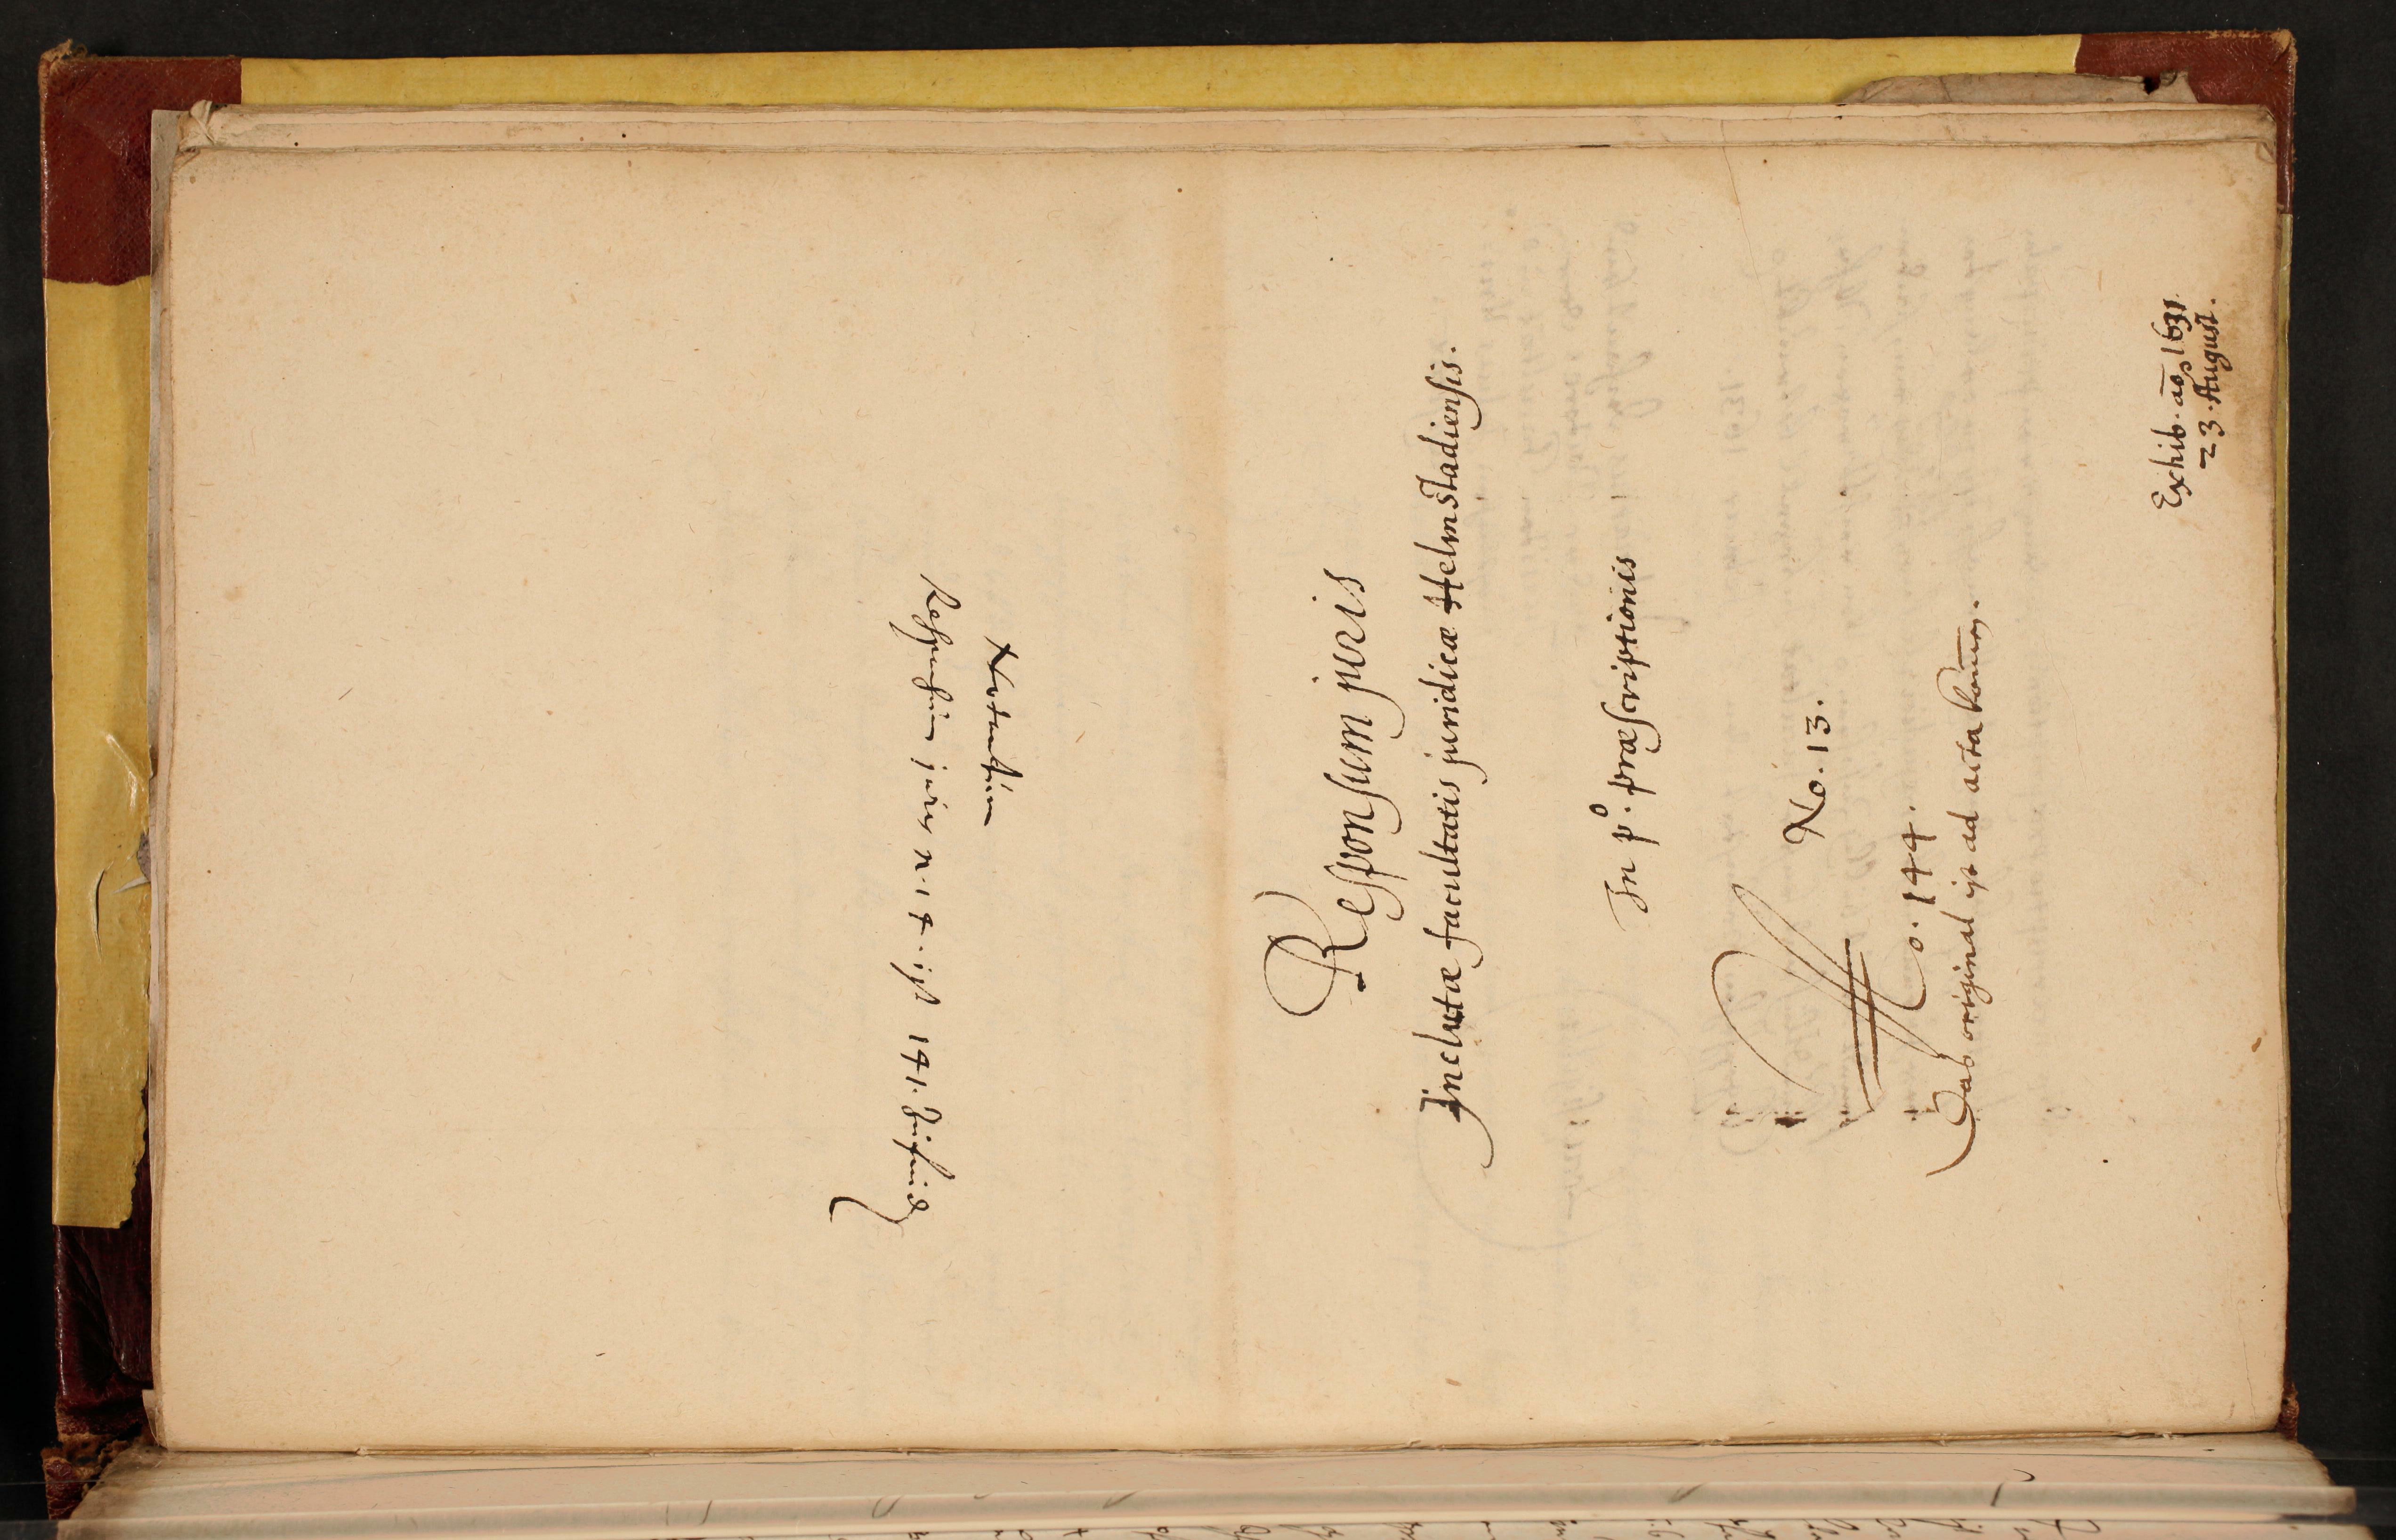 Responsum juris
Inclutæ facultatis juridicæ Helmstadiensis.
In p.° præscriptionis
No. 13.
No. 144.
Das original ist ad acta kom̄en.
Exhib. ao 1631.
23. August.
Responsum juris N. 14. ist 141.